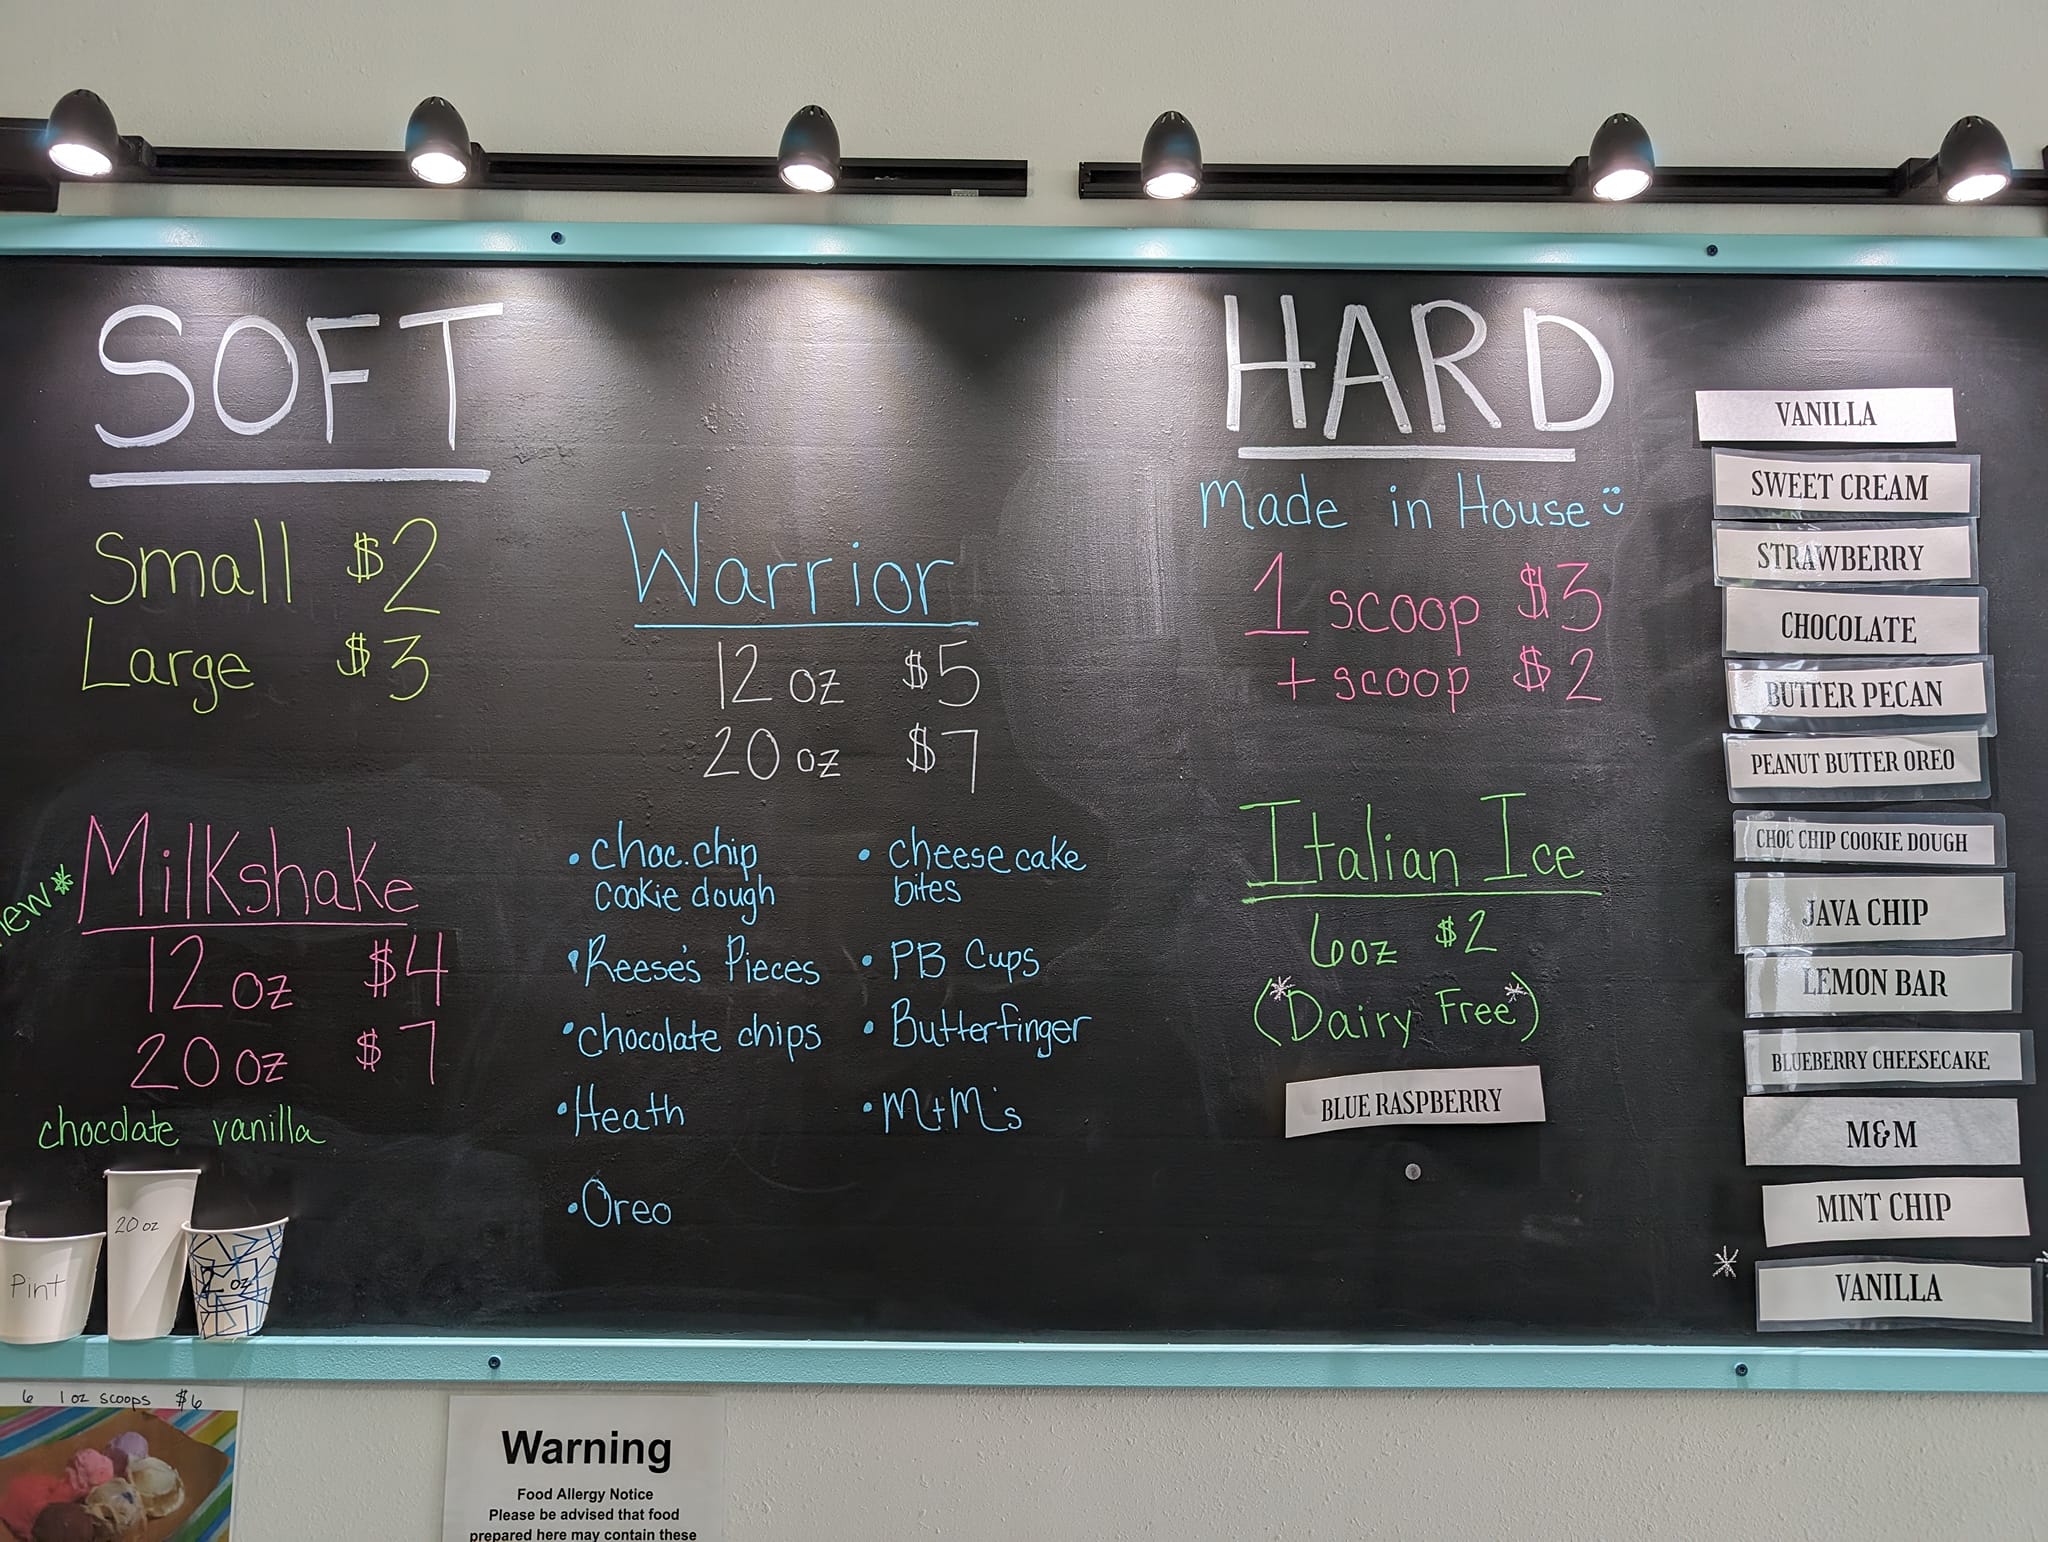 SOFT
Small $2
Large $3
new*
Milkshake
12 oz $4
20 oz $7
chocolate vanilla
Warrior
12 oz $5
20 oz $7
• choc. chip
cookie dough
• Reese's Pieces
• chocolate chips
• Heath
• Oreo
• cheesecake
bites
• PB Cups
• Butterfinger
• M+M's
HARD
Made in House
1 scoop $3
+ scoop $2
Italian Ice
6 oz $2
(*Dairy Free*)
BLUE RASPBERRY
VANILLA
SWEET CREAM
STRAWBERRY
CHOCOLATE
BUTTER PECAN
PEANUT BUTTER OREO
CHOC CHIP COOKIE DOUGH
JAVA CHIP
LEMON BAR
BLUEBERRY CHEESECAKE
M&M
MINT CHIP
* VANILLA *
Pint
20 oz
oz
6 1 oz scoops $6
Warning
Food Allergy Notice
Please be advised that food
prepared here may contain these